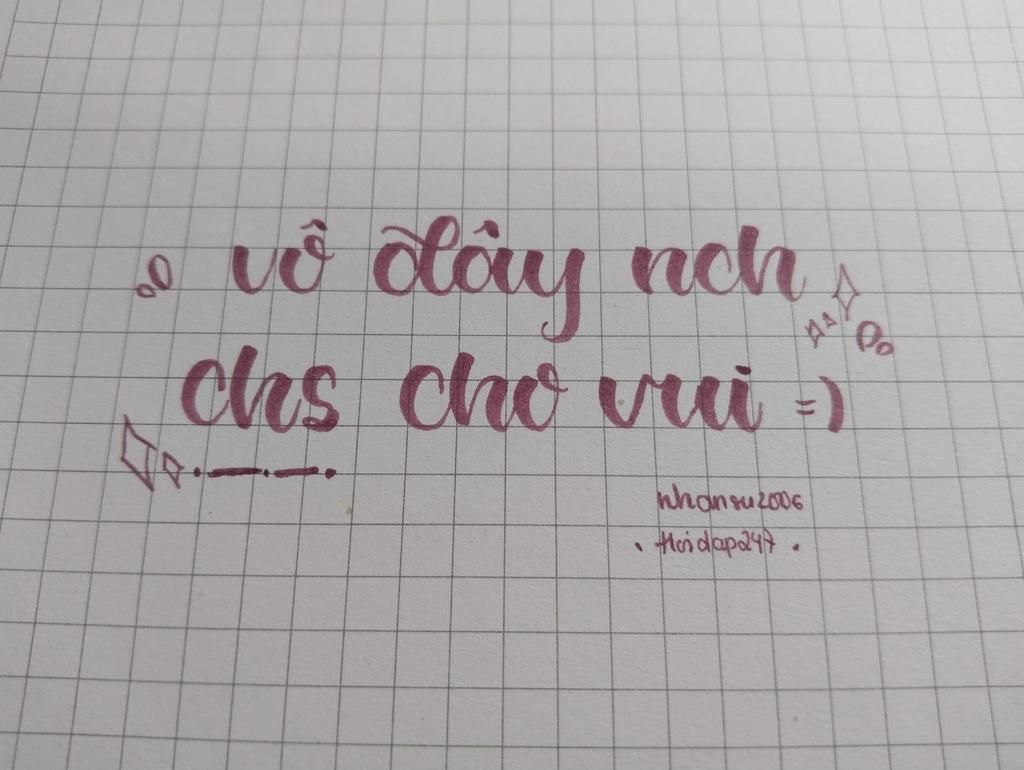 vô đây nch
chs cho vui =)
nhansu2006
. Hoidap247 .